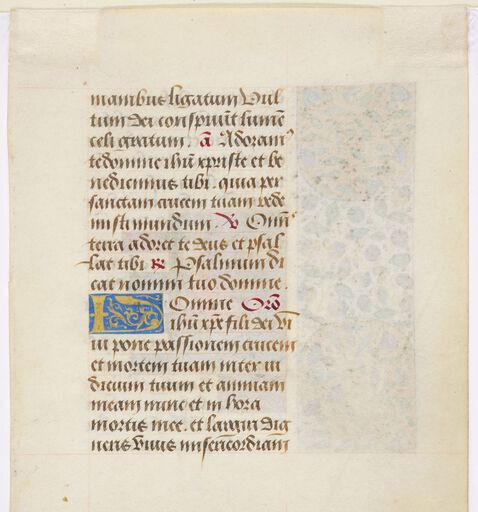 manibus ligatum Vul
tum dei conspuūt lumē
celi gratum. a Adoram⁹
te domine ihū xpriste et be
nedicimus tibi. quia per
sanctam crucem tuam rede
misti mundum. V Omīs
terra adoret te deus et psal
lat tibi R Psalmum di
cat nomini tuo domine.
Domine Orō
ihū xpē fili dei vi
ui pone passionem crucem
et mortem tuam inter iu
dicium tuum et animam
meam nunc et in hora
mortis mee. et largiri dig
neris viuis misericordiam